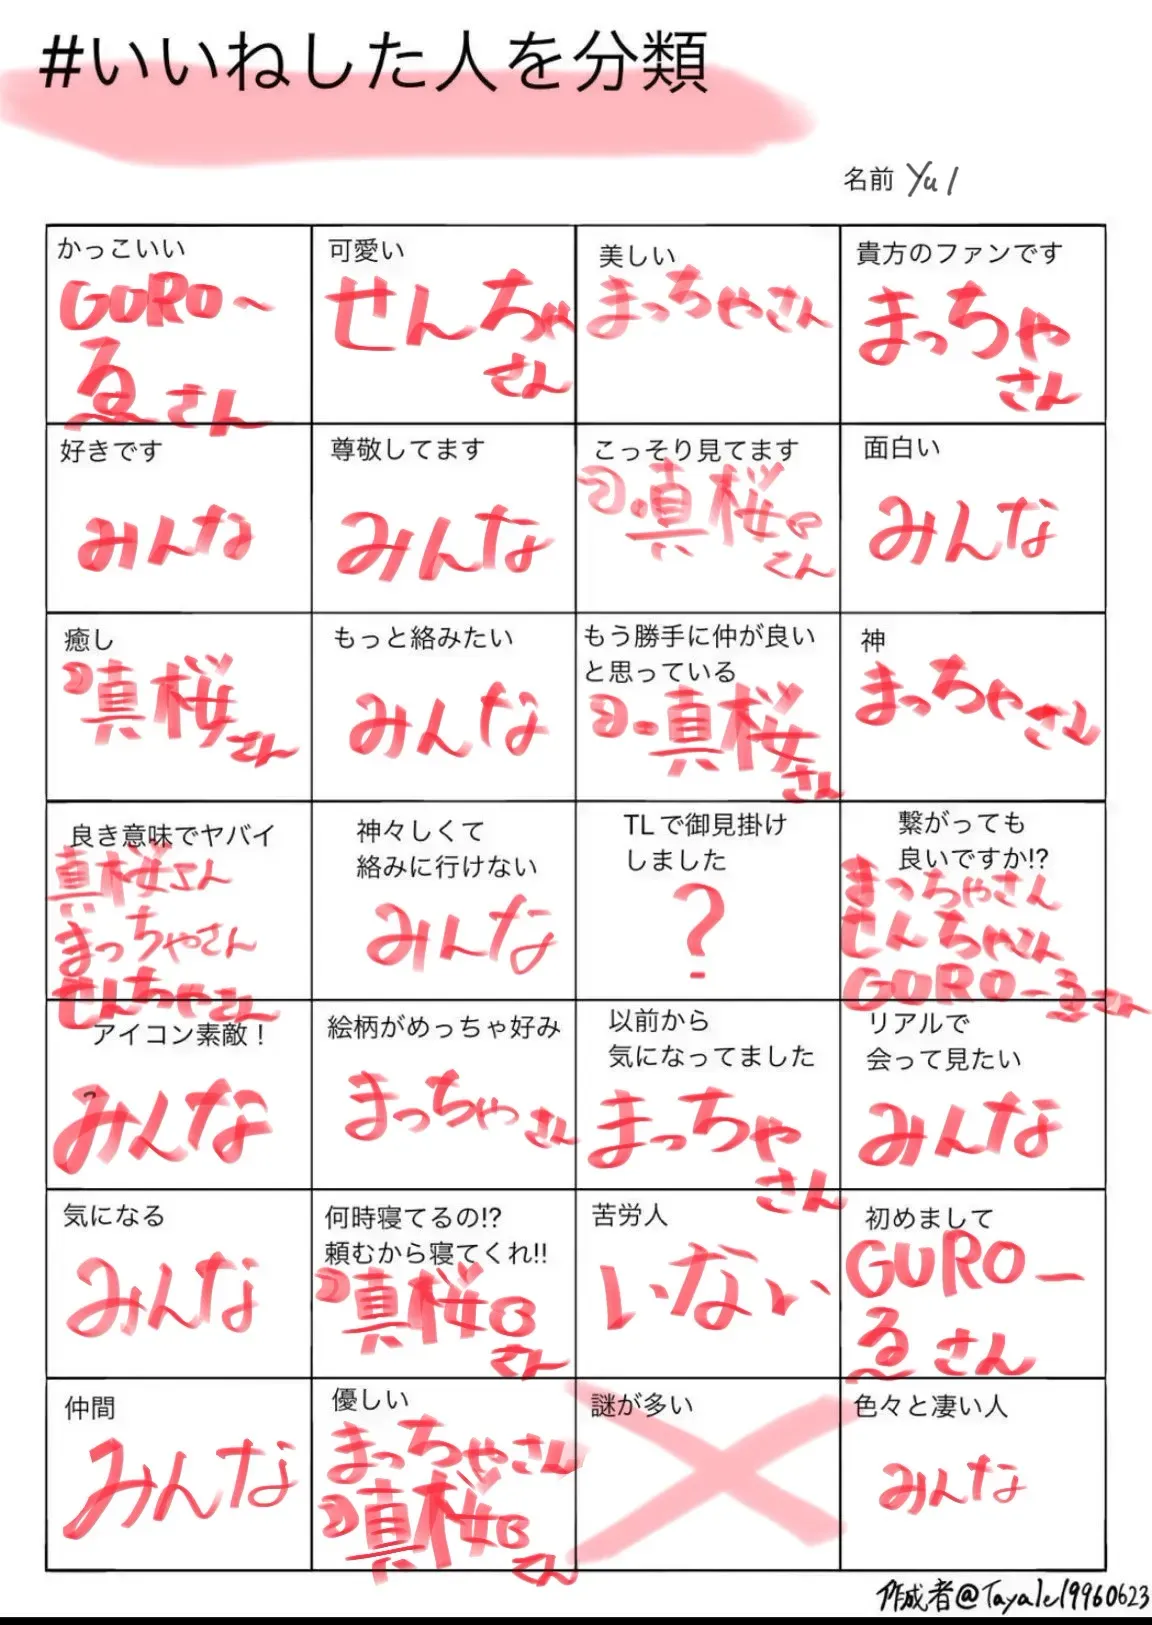 #いいねした人を分類
名前 Yul
かっこいい
GURO～
ゑさん
可愛い
せんちゃ
さん
美しい
まっちゃさん
貴方のファンです
まっちゃ
さん
好きです
みんな
尊敬してます
みんな
こっそり見てます
真桜
さん
面白い
みんな
癒し
真桜
さん
もっと絡みたい
みんな
もう勝手に仲が良い
と思っている
真桜
さん
神
まっちゃさん
良き意味でヤバイ
真桜さん
まっちゃさん
せんちゃさん
神々しくて
絡みに行けない
みんな
TLで御見掛け
しました
?
繋がっても
良いですか!?
まっちゃさん
せんちゃさん
GUROーゑさん
アイコン素敵！
みんな
絵柄がめっちゃ好み
まっちゃさん
以前から
気になってました
まっちゃ
さん
リアルで
会って見たい
みんな
気になる
みんな
何時寝てるの!?
頼むから寝てくれ!!
真桜
さん
苦労人
いない
初めまして
GUROー
ゑさん
仲間
みんな
優しい
まっちゃさん
真桜
さん
謎が多い
色々と凄い人
みんな
作成者@Tayale19960623